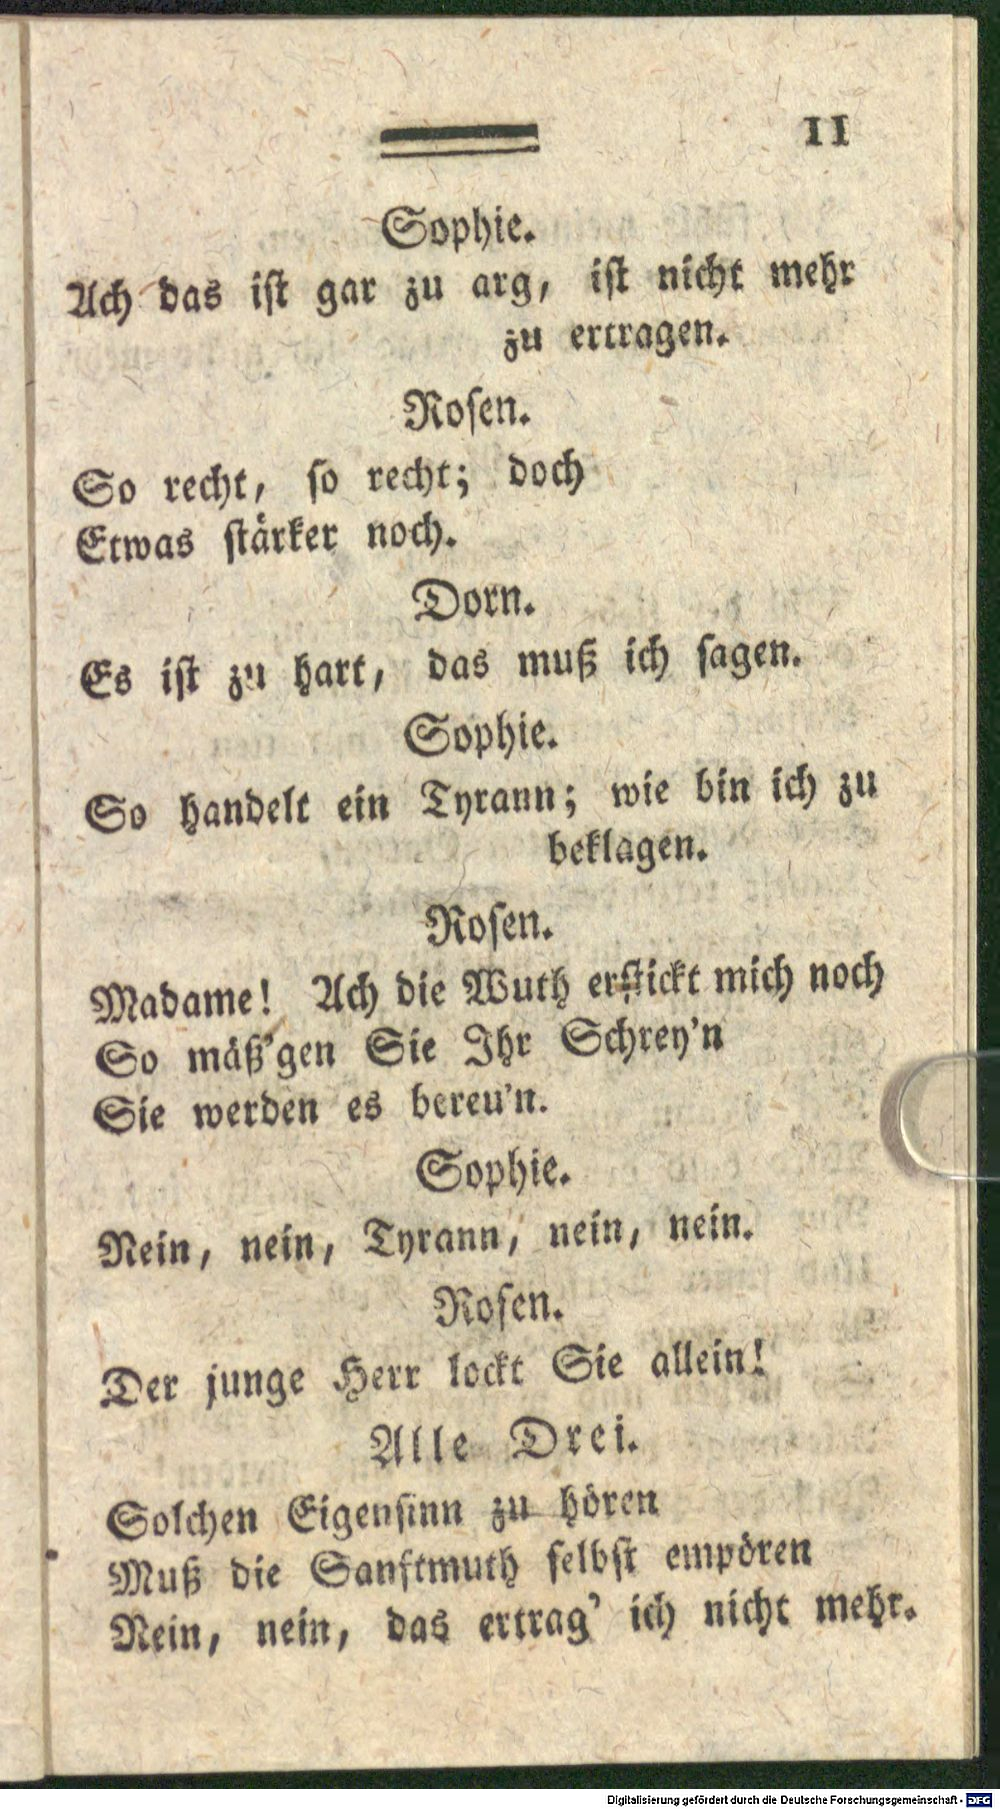 11
Sophie.
Ach das ist gar zu arg, ist nicht mehr
zu ertragen.
Rosen.
So recht, so recht; doch
Etwas stärker noch.
Dorn.
Es ist zu hart, das muß ich sagen.
Sophie.
So handelt ein Tyrann; wie bin ich zu
beklagen.
Rosen.
Madame! Ach die Wuth erstickt mich noch
So mäß'gen Sie Ihr Schrey'n
Sie werden es bereu'n.
Sophie.
Nein, nein, Tyrann, nein, nein.
Rosen.
Der junge Herr lockt Sie allein!
Alle Drei.
Solchen Eigensinn zu hören
Muß die Sanftmuth selbst empören
Nein, nein, das ertrag' ich nicht mehr.
Digitalisierung gefördert durch die Deutsche Forschungsgemeinschaft - DFG